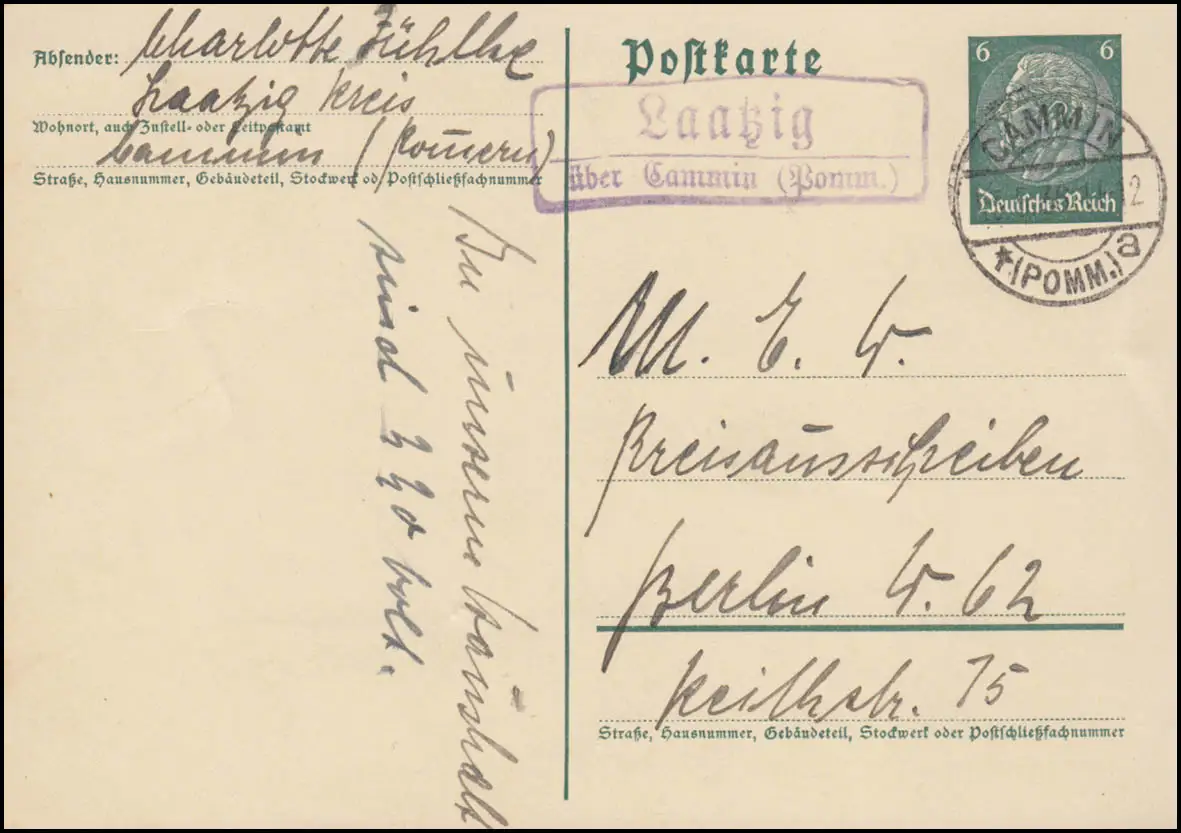 Absender: Charlotte Zühlke
Laatzig Kreis
Wohnort, auch Zustell- oder Leitpostamt
Cammin (Pomern)
Straße, Hausnummer, Gebäudeteil, Stockwerk od. Postschließfachnummer
In unserm Haushalt
sind 220 Volt.
Postkarte
Laatzig
über Cammin (Pomm.)
6 6
Deutsches Reich
CAMMIN
12
*(POMM.) a
M. E. W.
Preisausschreiben
Berlin W. 62
Keithstr. 75
Straße, Hausnummer, Gebäudeteil, Stockwerk oder Postschließfachnummer